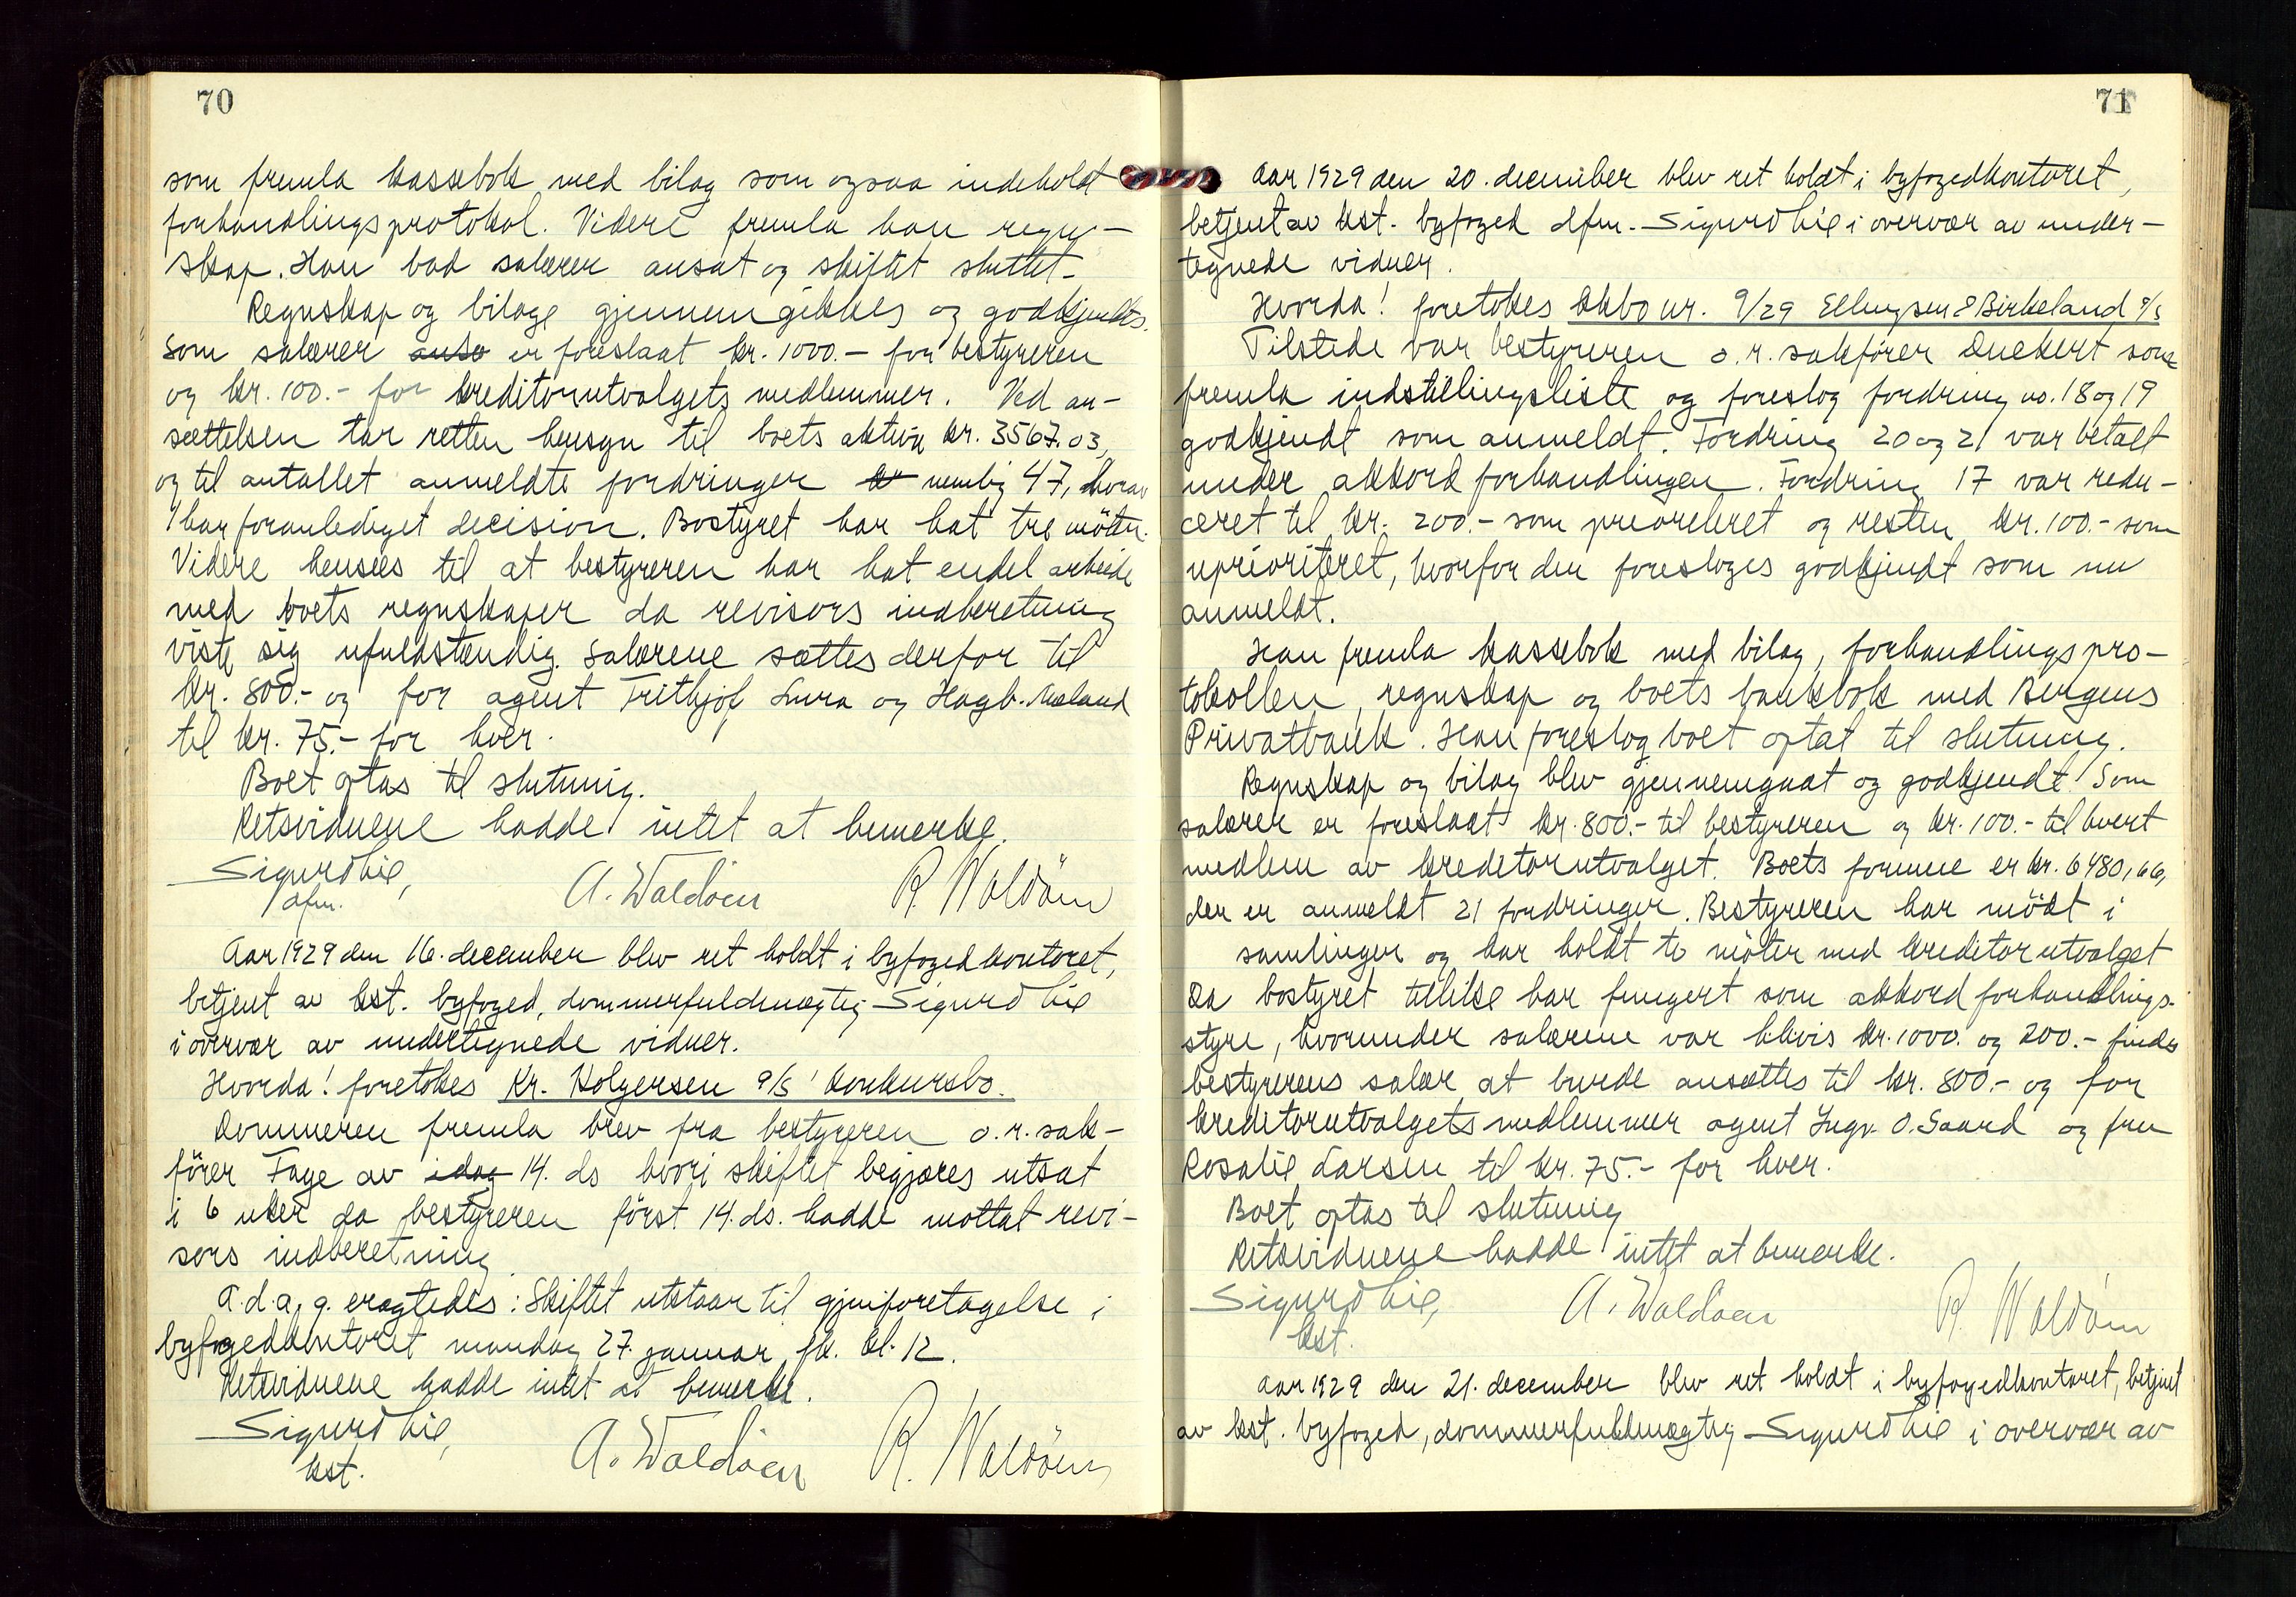 70
som fremla kassebok med bilag som ogsaa indeholdt
forhandlingsprotokol. Videre fremla han regn-
skap. Han bad salærer ansat og skiftet sluttet.
Regnskap og bilage gjennemgikkes og godkjentes.
Som salærer anse er foreslaat kr. 1000.- for bestyreren
og kr. 100.- for kreditorutvalgets medlemmer. Ved an-
sættelsen tar retten hensyn til boets aktiva kr. 3567.03,
og til antallet anmeldte fordringer nemlig 47, hvorav
1 har foranlediget decision. Bostyret har hat tre möter.
Videre hensees til at bestyreren har hat endel arbeide
med boets regnskaper da revisors indberetning
viste sig ufuldstændig. Salærene sættes derfor til
kr. 800.- og for agent Frithjof Lura og Hagb. Mæland
til kr. 75.- for hver.
Boet optas til slutning.
Retsvidnene hadde intet at bemerke.
Sigurd Lie,
dfm.
A. Waldöen
R. Waldöen
Aar 1929 den 16. december blev ret holdt i byfogedkontoret,
betjent av kst. byfoged, dommerfuldmægtig Sigurd Lie
i overvær av undertegnede vidner.
Hvorda! foretokes Kr. Holgersen A/S' konkursbo.
Dommeren fremla brev fra bestyreren o.r.sak-
förer Fage av idag 14. ds hvori skiftet begjæres utsat
i 6 uker da bestyreren först 14. ds. hadde mottat revi-
sors indberetning
A.d.a.g. eragtedes: Skiftet utstaar til gjenforetagelse i
byfogedkontoret mandag 27. januar fk. kl. 12.
Retsvidnene hadde intet at bemerke.
Sigurd Lie,
kst.
A. Waldöen
R. Waldöen
71
Aar 1929 den 20. december blev ret holdt i byfogedkontoret,
betjent av kst. byfoged dfm. Sigurd Lie i overvær av under-
tegnede vidner.
Hvorda! foretokes kkbo nr. 9/29 Ellingsen & Birkeland A/S
Tilstede var bestyreren o.r.sakförer Duckert som
fremla indstillingsliste og foreslog fordring no. 18 og 19
godkjendt som anmeldt. Fordring 20 og 21 var betalt
under akkordforhandlingen. Fordring 17 var redu-
ceret til kr. 200.- som prioriteret og resten kr. 100.- som
uprioriteret, hvorfor den foresloges godkjendt som nu
anmeldt.
Han fremla kassebok med bilag, forhandlingspro-
tokollen, regnskap og boets bankbok med Bergens
Privatbank. Han foreslog boet optat til slutning.
Regnskap og bilag blev gjennemgaat og godkjendt. Som
salærer er foreslaat kr. 800.- til bestyreren og kr. 100.- til hvert
medlem av kreditorutvalget. Boets formue er kr. 6480,66,
der er anmeldt 21 fordringer. Bestyreren har mödt i
samlinger og har holdt to möter med kreditorutvalget
Da bostyret tillike har fungert som akkordforhandlings-
styre, hvorunder salærene var hhvis kr. 1000. og 200.- findes
bestyrerens salær at burde ansættes til kr. 800.- og for
kreditorutvalgets medlemmer agent Ingv. O. Saard og fru
Rosalie Larsen til kr. 75.- for hver.
Boet optas til slutning
Retsvidnene hadde intet at bemerke.
Sigurd Lie,
kst.
A. Waldöen
R. Waldöen
Aar 1929 den 21. december blev ret holdt i byfogedkontoret, betjent
av kst. byfoged, dommerfuldmægtig Sigurd Lie i overvær av